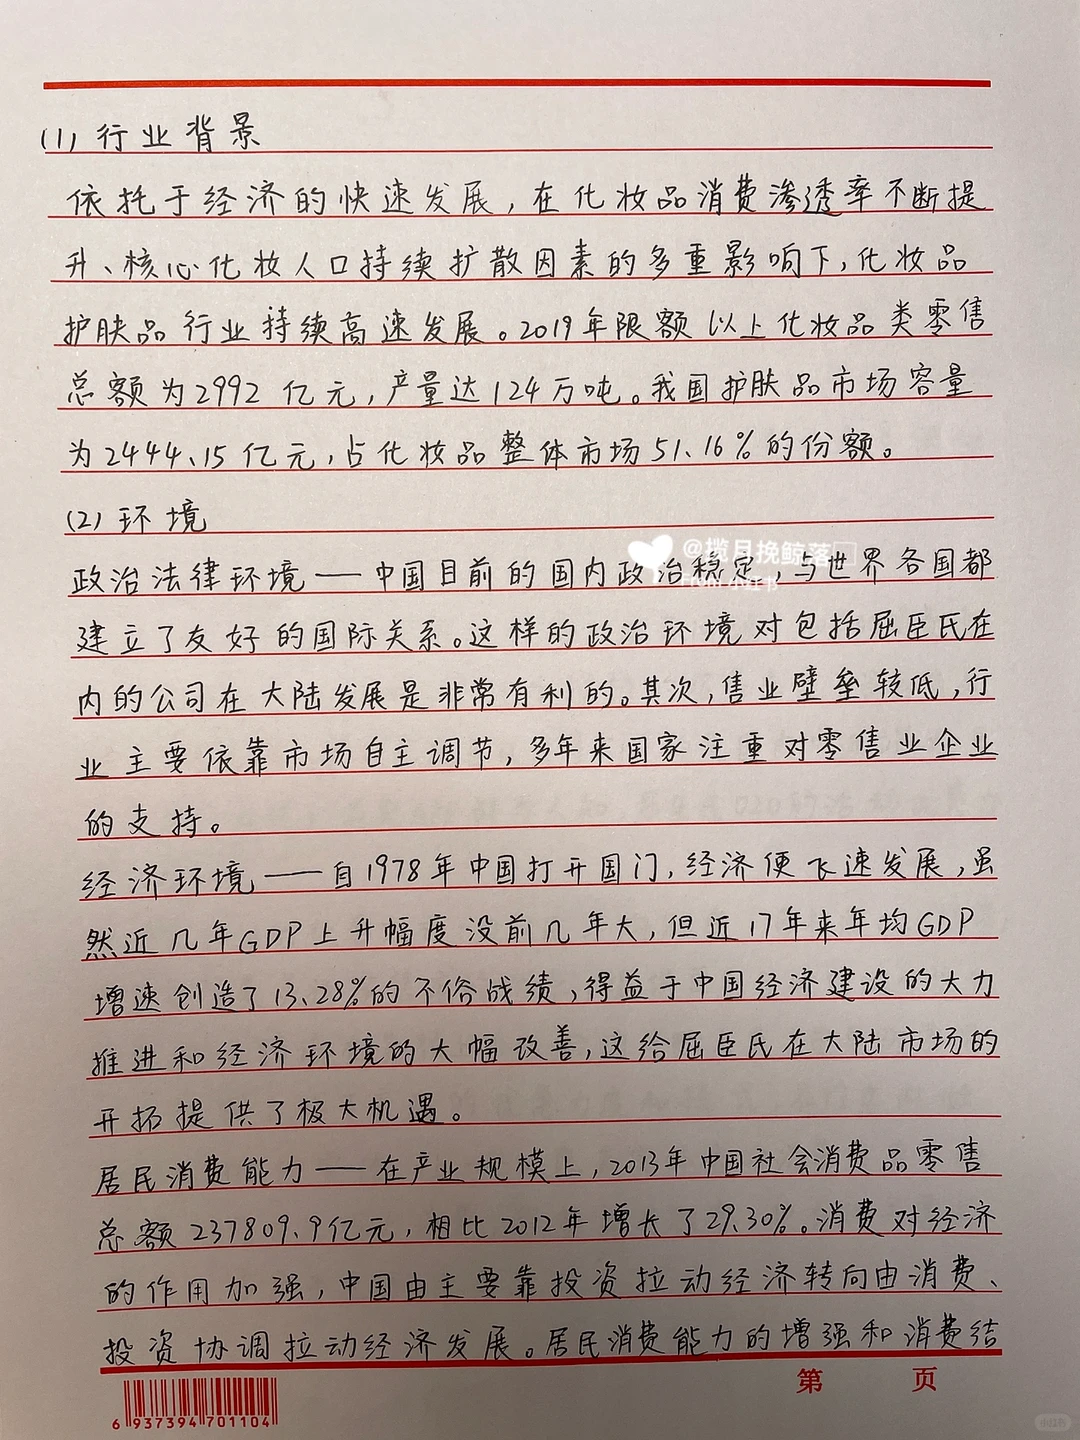 (1) 行业背景
依托于经济的快速发展，在化妆品消费渗透率不断提
升、核心化妆人口持续扩散因素的多重影响下，化妆品
护肤品行业持续高速发展。2019年限额以上化妆品类零售
总额为2992亿元，产量达124万吨。我国护肤品市场容量
为2444.15亿元，占化妆品整体市场51.16%的份额。
(2) 环境
政治法律环境——中国目前的国内政治稳定，与世界各国都
建立了友好的国际关系。这样的政治环境对包括屈臣氏在
内的公司在大陆发展是非常有利的。其次，售业壁垒较低，行
业主要依靠市场自主调节，多年来国家注重对零售业企业
的支持。
经济环境——自1978年中国打开国门，经济便飞速发展，虽
然近几年GDP上升幅度没前几年大，但近17年来年均GDP
增速创造了13.28%的不俗战绩，得益于中国经济建设的大力
推进和经济环境的大幅改善，这给屈臣氏在大陆市场的
开拓提供了极大机遇。
居民消费能力——在产业规模上，2013年中国社会消费品零售
总额237809.9亿元，相比2012年增长了29.30%。消费对经济
的作用加强，中国由主要靠投资拉动经济转向由消费、
投资协调拉动经济发展。居民消费能力的增强和消费结
第 页
6 937394 701104
@揽月挽鲸落
小红书